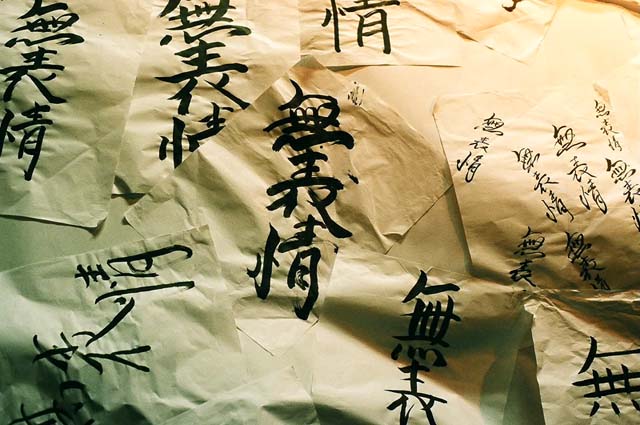 無表情
無表情
情
無表情
無表情
無表情
無表情
無表情
無表
無表
無表情
無表
無